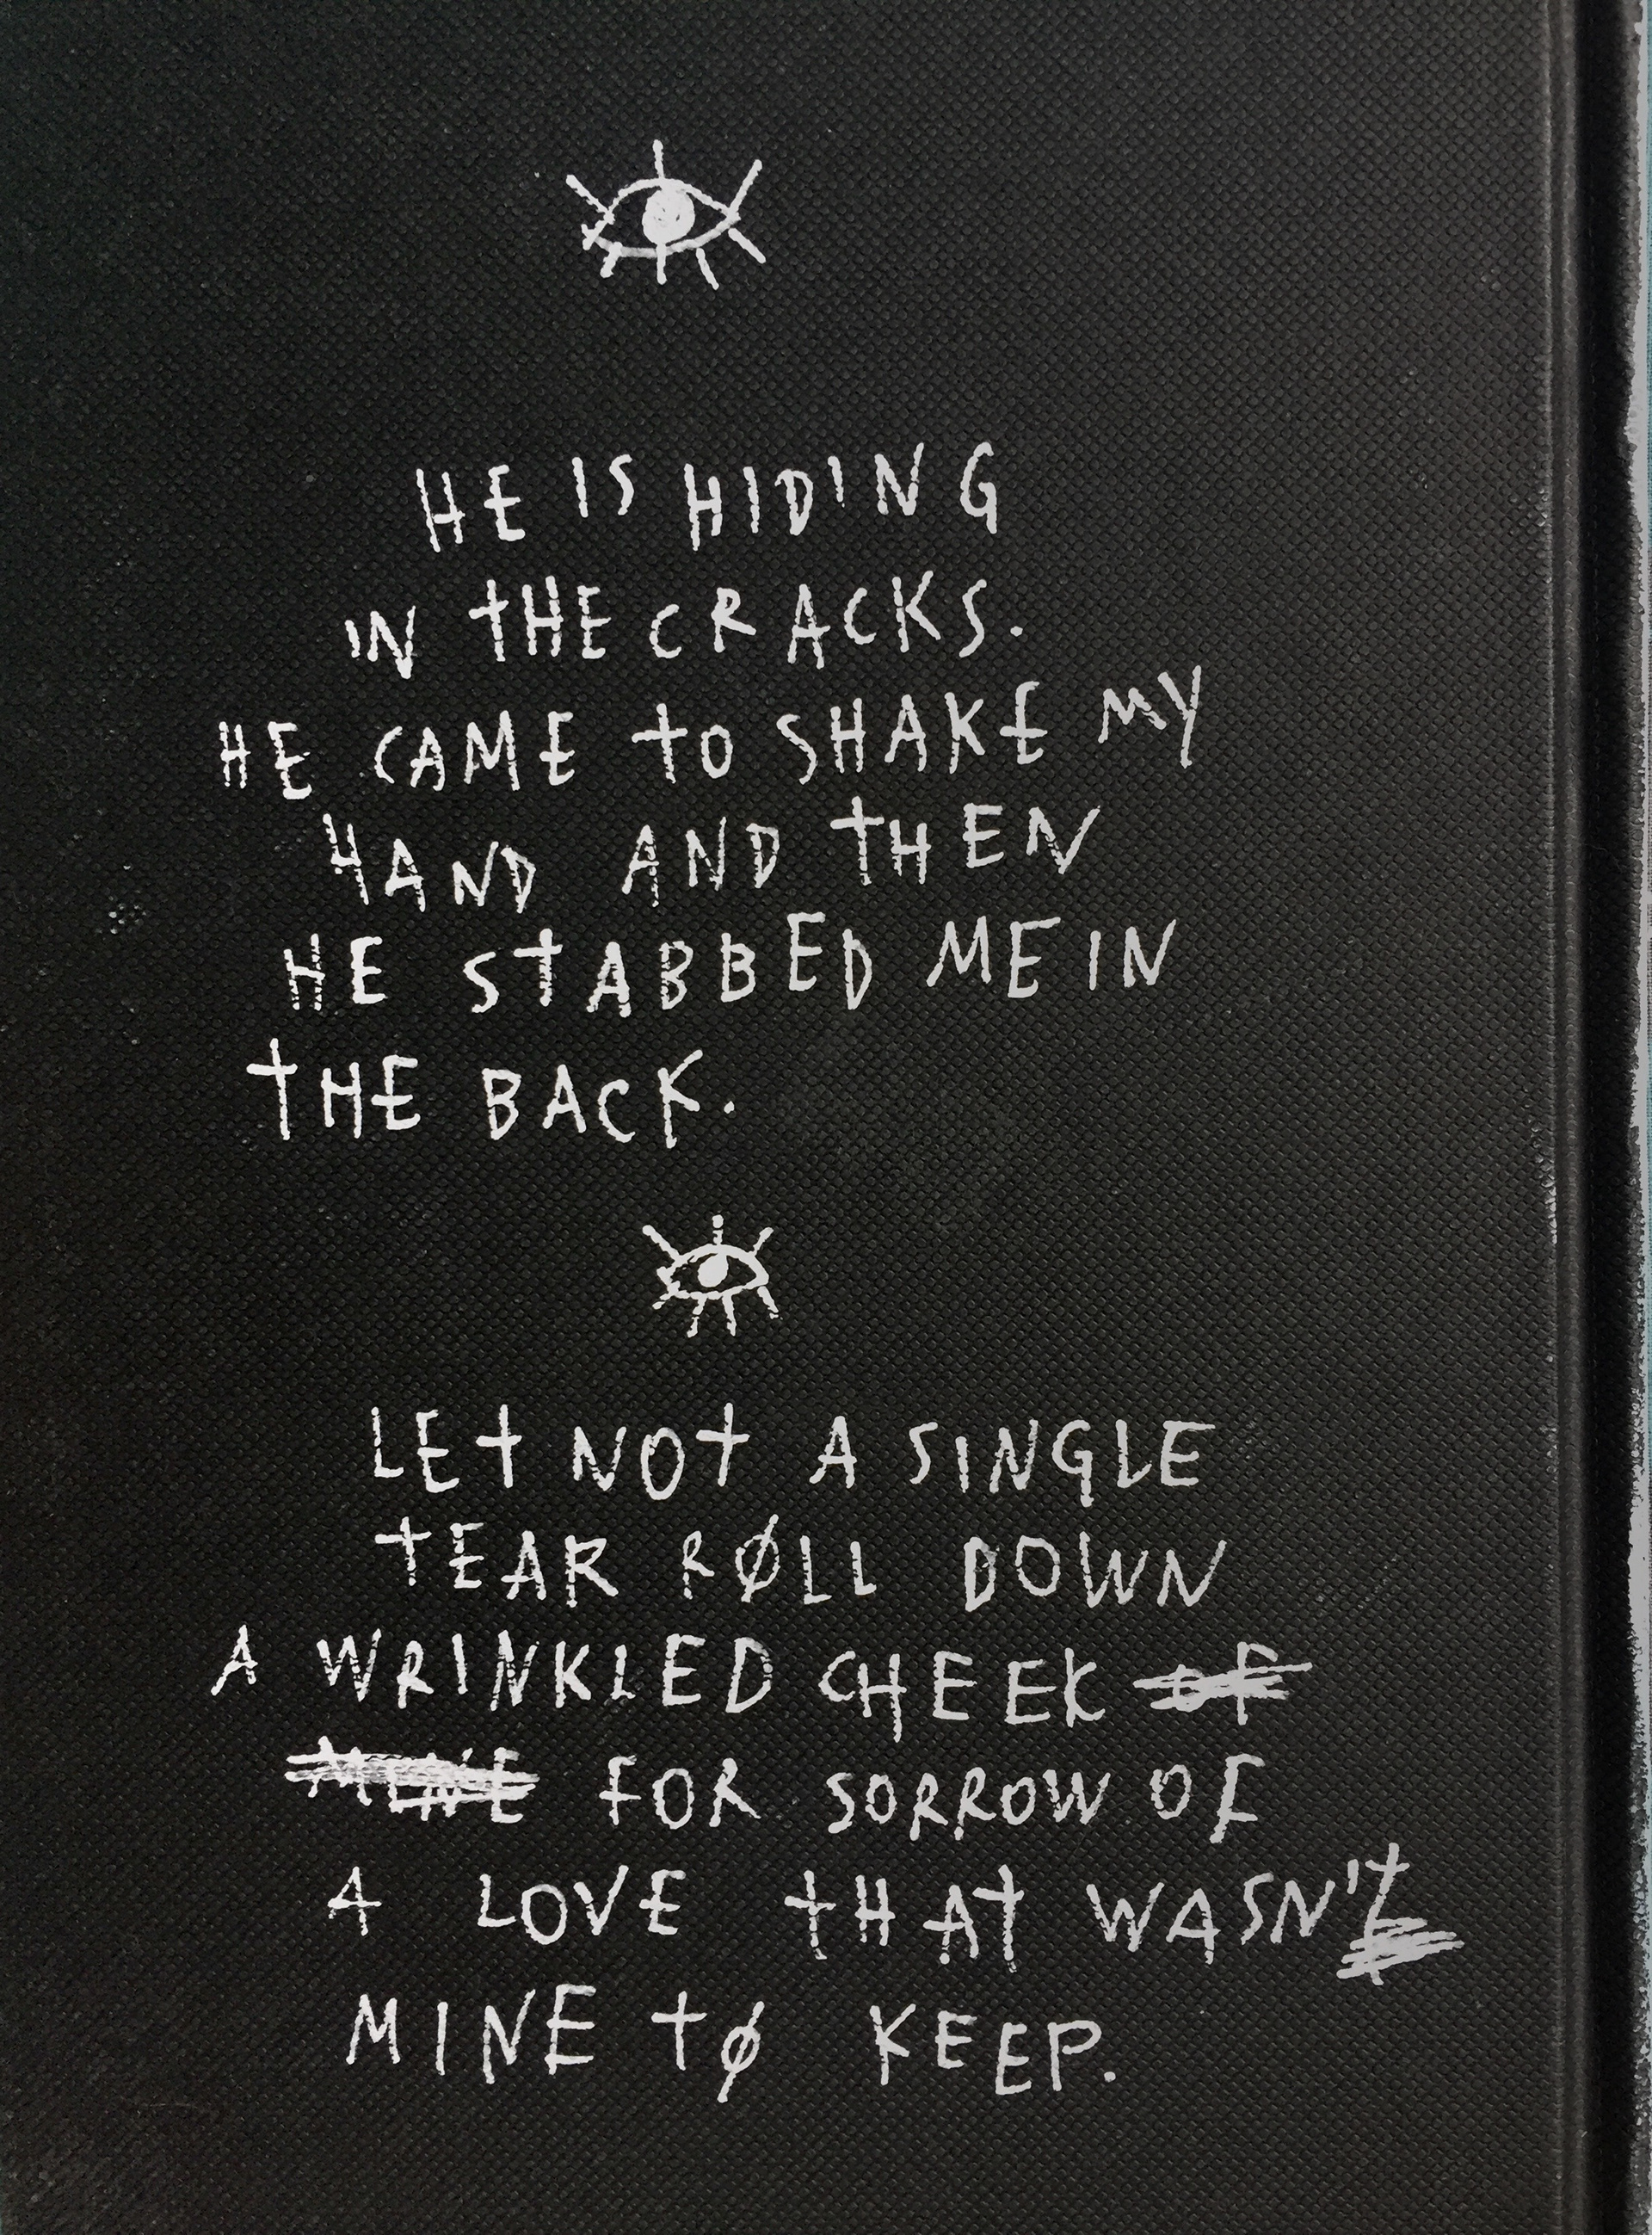 HE IS HIDING
IN THE CRACKS.
HE CAME TO SHAKE MY
HAND AND THEN
HE STABBED ME IN
THE BACK.
LET NOT A SINGLE
TEAR RØLL DOWN
A WRINKLED CHEEK OF
MINE FOR SORROW OF
A LOVE THAT WASN'T
MINE TØ KEEP.